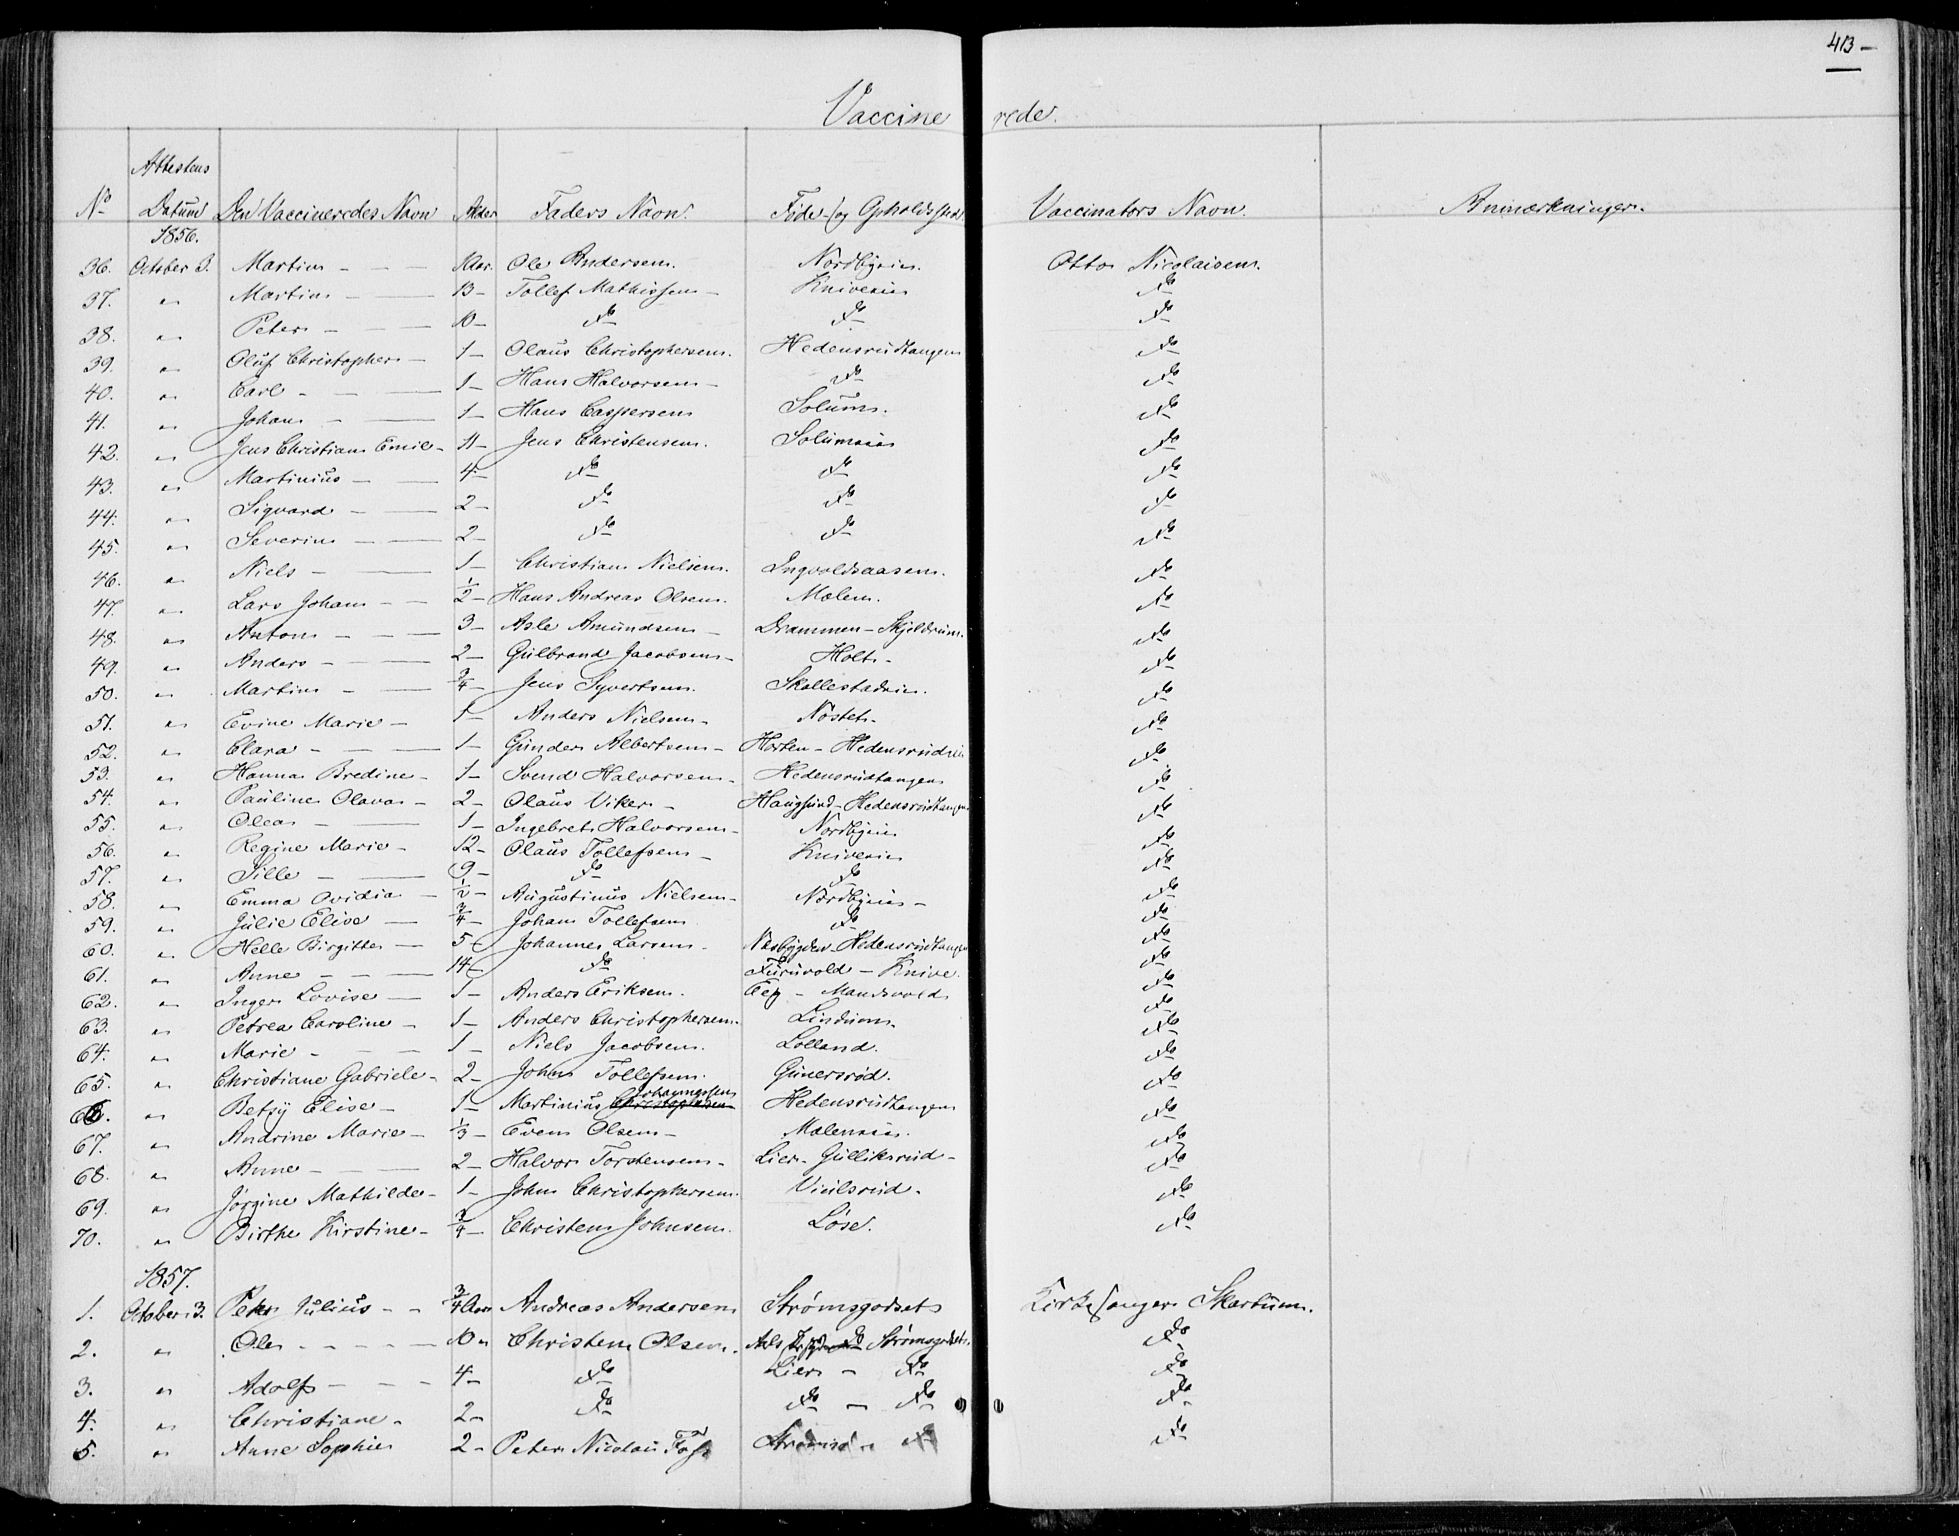 413 –
Vaccinerede.
No Attestens Datum Den Vaccineredes Navn Alder Faders Navn. Føde- og Opholdssted Vaccinators Navn. Anmærkninger.
1856.
36. October 3. Martin – – 10 Aar. Ole Andersen. Nordbyeie. Otto Nicolaisen.
37. " Martin – – 13 – Tollef Mathissen – Kniveeie do
38. " Peter – – 10 – do do do
39. " Oluf Christopher – 1 – Olaus Christophersen. Hedensrudtangen do
40. " Carl – – 1 – Hans Halvorsen – do do
41. " Johan – – 1 – Hans Caspersen Solum. do
42. " Jens Christian Emil – 11 – Jens Christensen. Solumeie do
43. " Martinius – – 4 – do do do
44. " Sigvard – – 2 – do do do
45. " Severin – – 2 – do do do
46. " Niels – – 1 – Christian Nielsen. Ingvoldsaasen. do
47. " Lars Johan – – 1/2 – Hans Andreas Olsen. Mælen. do
48. " Anton – – – 3 – Asle Amundsen – Drammen – Skjeldrum. do
49. " Anders – – 2 – Gulbrand Jacobsen – Holt – do
50. " Martin – – 3/4 – Jens Syvertsen. Skallestadeie. do
51. " Evine Marie – 1 – Anders Nielsen – Nøstet – do
52. " Clara – – – 1 – Gunder Albertsen – Horten – Hedensrudeie do
53. " Hanna Bredine – 1 – Svend Halvorsen – Hedensrudtangen do
54. " Pauline Olava – 2 – Olaus Viker – Haugsund – Hedensrudtangen do
55. " Olea – – 1 – Ingebret Halvorsen – Nordbyeie do
56. " Regine Marie – 12 – Olaus Tollefsen – Kniveeie do
57. " Sille – – 9 – do do do
58. " Emma Ovidia – 1/2 – Augustinus Nielsen – Nordbyeie – do
59. " Julie Elise – 3/4 – Johan Tollefsen do do
60. " Helle Birgitte – 5 – Johannes Larsen – Næsbygden – Hedensrudtangen do
61. " Anne – – – 14 – do Furuvold – Knive. do
62. " Inger Lovise – 1 – Anders Eriksen. Eeg – Mandsvold do
63. " Petrea Caroline – 1 – Anders Christophersen. Lindum. do
64. " Marie – – – 1 – Niels Jacobsen. Lolland. do
65. " Christiane Gabriele – 2 – John Tollefsen. Gunersrød. do
66. " Betsy Elise – 1 – Martinius Christophersen Johannessen Hedensrudtangen do
67. " Andrine Marie – 1/3 – Even Olsen – Mæleneie. do
68. " Anne – – – 2 – Halvor Torstensen – Lier – Gulliksrud – do
69. " Jørgine Mathilde – 1 – John Christophersen. Viulsrud. do
70. " Birthe Kirstine – 3/4 – Christen Johnsen. Løse. do
1857.
1. October 3. Peter Julius – – 3/4 Aar Andreas Andersen Strømsgodset Kirkesanger Skartum.
2. " Ole – – – – 10 " Christen Olsen. Strømsgodset do
3. " Adolf – – – 4 – do Lier – do do
4. " Christiane – 2 – do do – do do
5. " Anne Sophie 2 – Peter Nicolai Foss do do